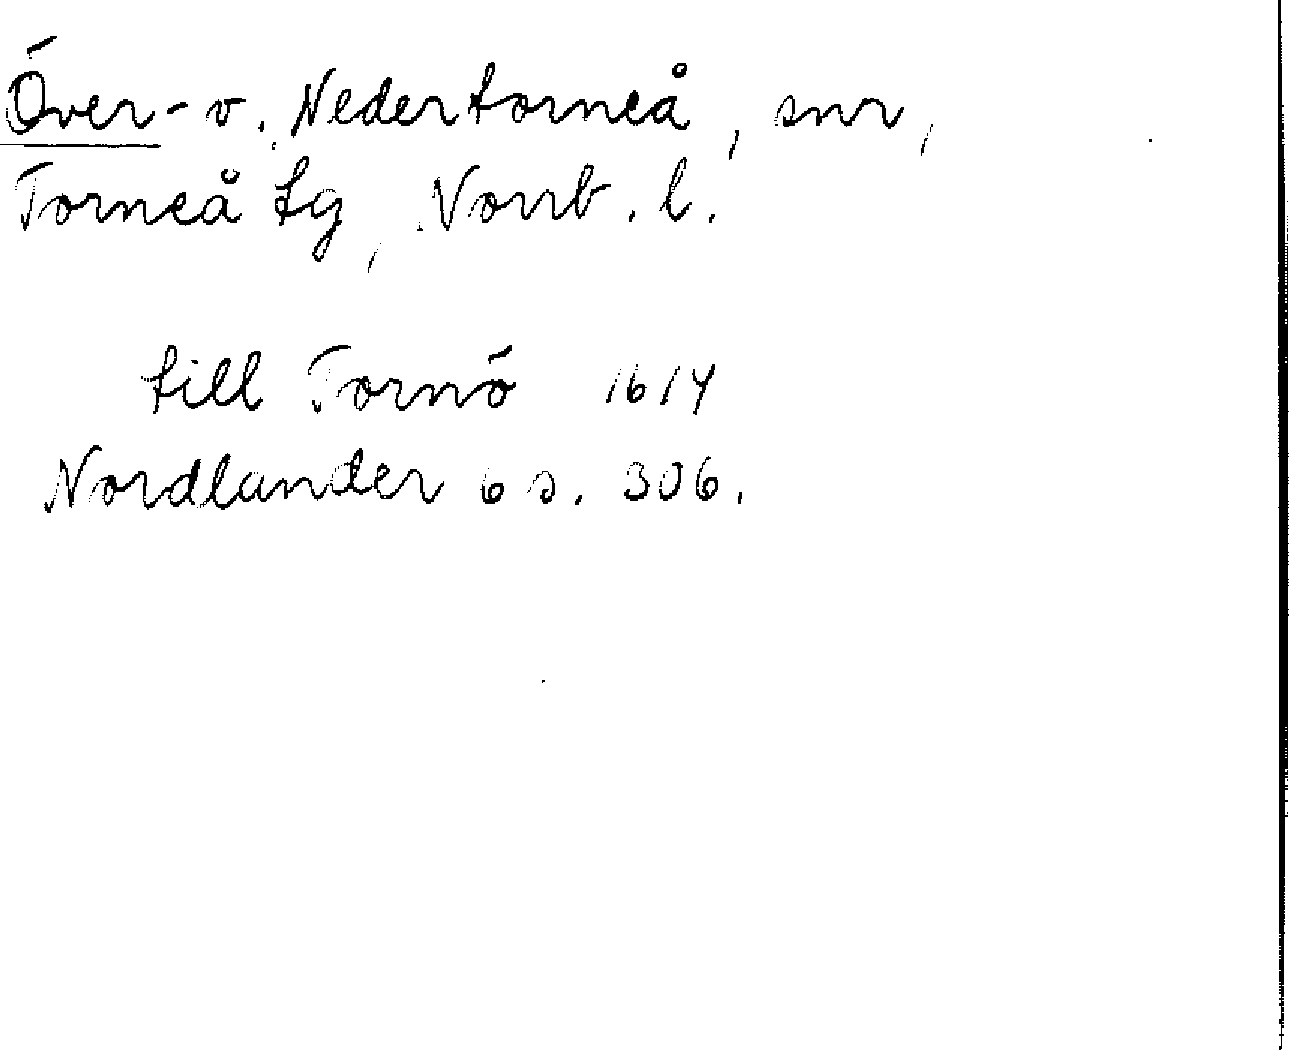 Över- v. Nedertorneå, snr,
Torneå tg, Norrb. l.
till Tornö 1614
Nordlander 6 s. 306.